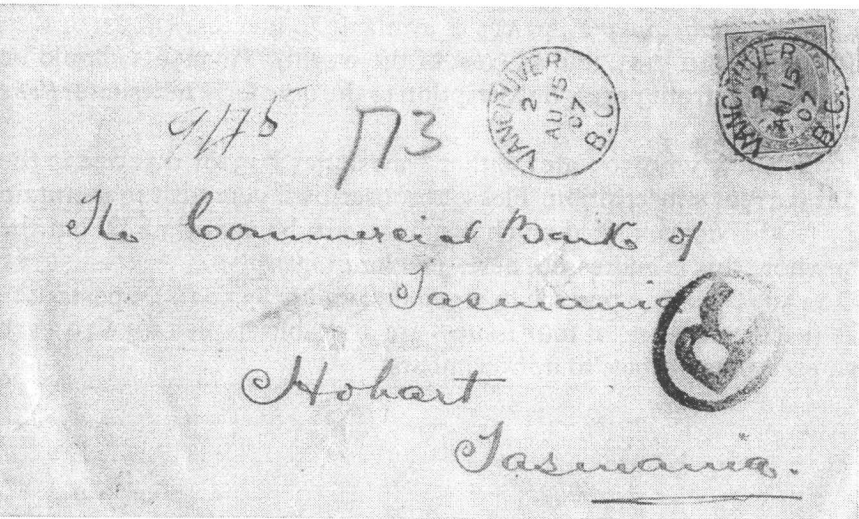 VANCOUVER
2
AU 15
07
B.C.
VANCOUVER
2
AU 15
07
B.C.
The Commercial Bank of
Tasmania
R
Hobart
Tasmania.